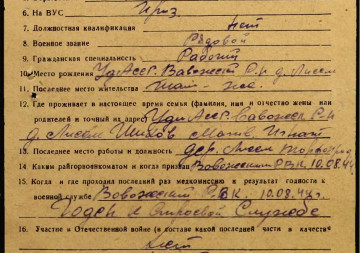 6. На ВУС
7. Должностная квалификация нет
8. Военное звание Рядовой
9. Гражданская специальность Рабочий
10. Место рождения Уд. Асср. Вавожский Р-н д.
11. Последнее место жительства там-же.
12. Где проживает в настоящее время семья (фамилия, имя и отчество жены или
родителей и точный их адрес) Уд. Асср. Вавожск. Р-н
д.
13. Последнее место работы и должность дер.
14. Каким райгорвоенкоматом и когда призван Вовожским РВК, 10.08.44
15. Когда и где проходил последний раз медкомиссию и результат годности к
военной службе Вовожский РВК, 10.08.44г.
Годен к строевой Службе
16. Участие в Отечественной войне (в составе какой последней части и в качестве
нет